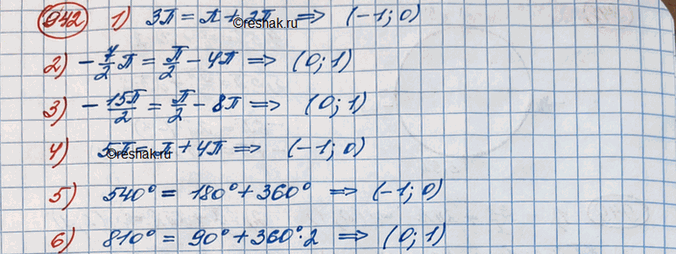 942 1) 3π = π + 2π ⇒ (-1; 0)
©reshak.ru
2) -7/2 π = π/2 - 4π ⇒ (0; 1)
3) -15π/2 = π/2 - 8π ⇒ (0; 1)
4) 5π = π + 4π ⇒ (-1; 0)
©reshak.ru
5) 540° = 180° + 360° ⇒ (-1; 0)
6) 810° = 90° + 360°·2 ⇒ (0; 1)